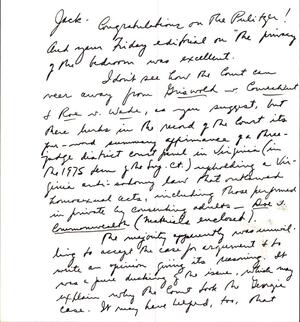 Jack. Congratulations on the Pulitzer!
And your Friday editorial on "the privacy
of the bedroom" was excellent.
I don't see how the Court can
veer away from Griswold v. Connecticut
& Roe v. Wade, as you suggest, but
there lurks in the record of the Court its
five-word summary affirmance of a three-
judge district court panel in Virginia (in
the 1975 term of the Sup. Ct.) upholding a Vir-
ginia anti-sodomy law that outlawed
homosexual acts, including those performed
in private by consenting adults — Doe v.
Commonwealth (materials enclosed).
The majority apparently was unwil-
ling to accept the case for argument & to
write an opinion giving its reasoning. It
was a pure ducking of the issue, which may
explain why the Court took the Georgia
case. It may have helped, too, that